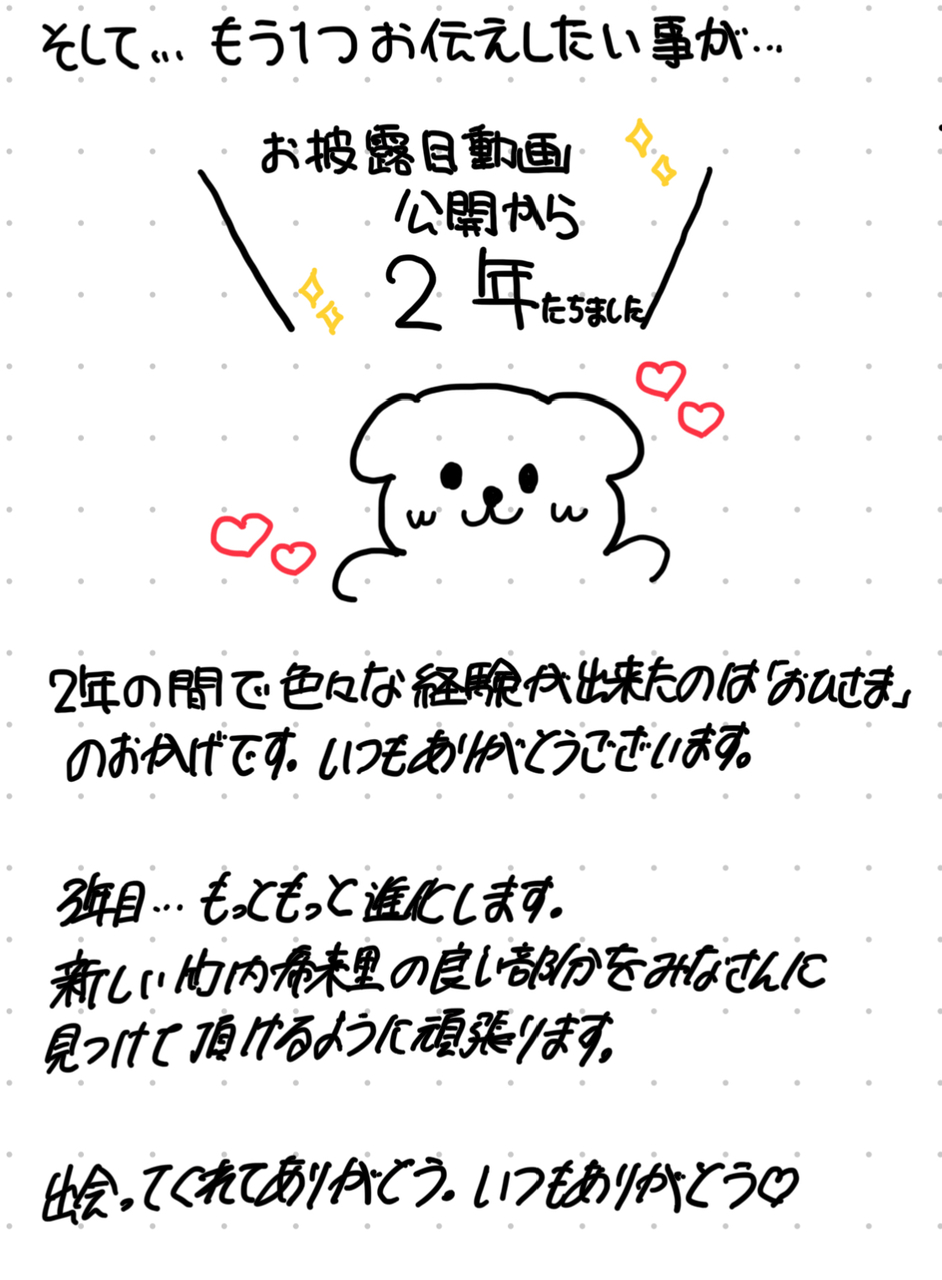 そして... もう1つお伝えしたい事が...
お披露目動画
公開から
2年たちました
2年の間で色々な経験が出来たのは「おひさま」
のおかげです。いつもありがとうございます。
3年目...もっともっと進化します。
新しい竹内希来里の良い部分をみなさんに
見つけて頂けるように頑張ります。
出会ってくれてありがとう。いつもありがとう♡